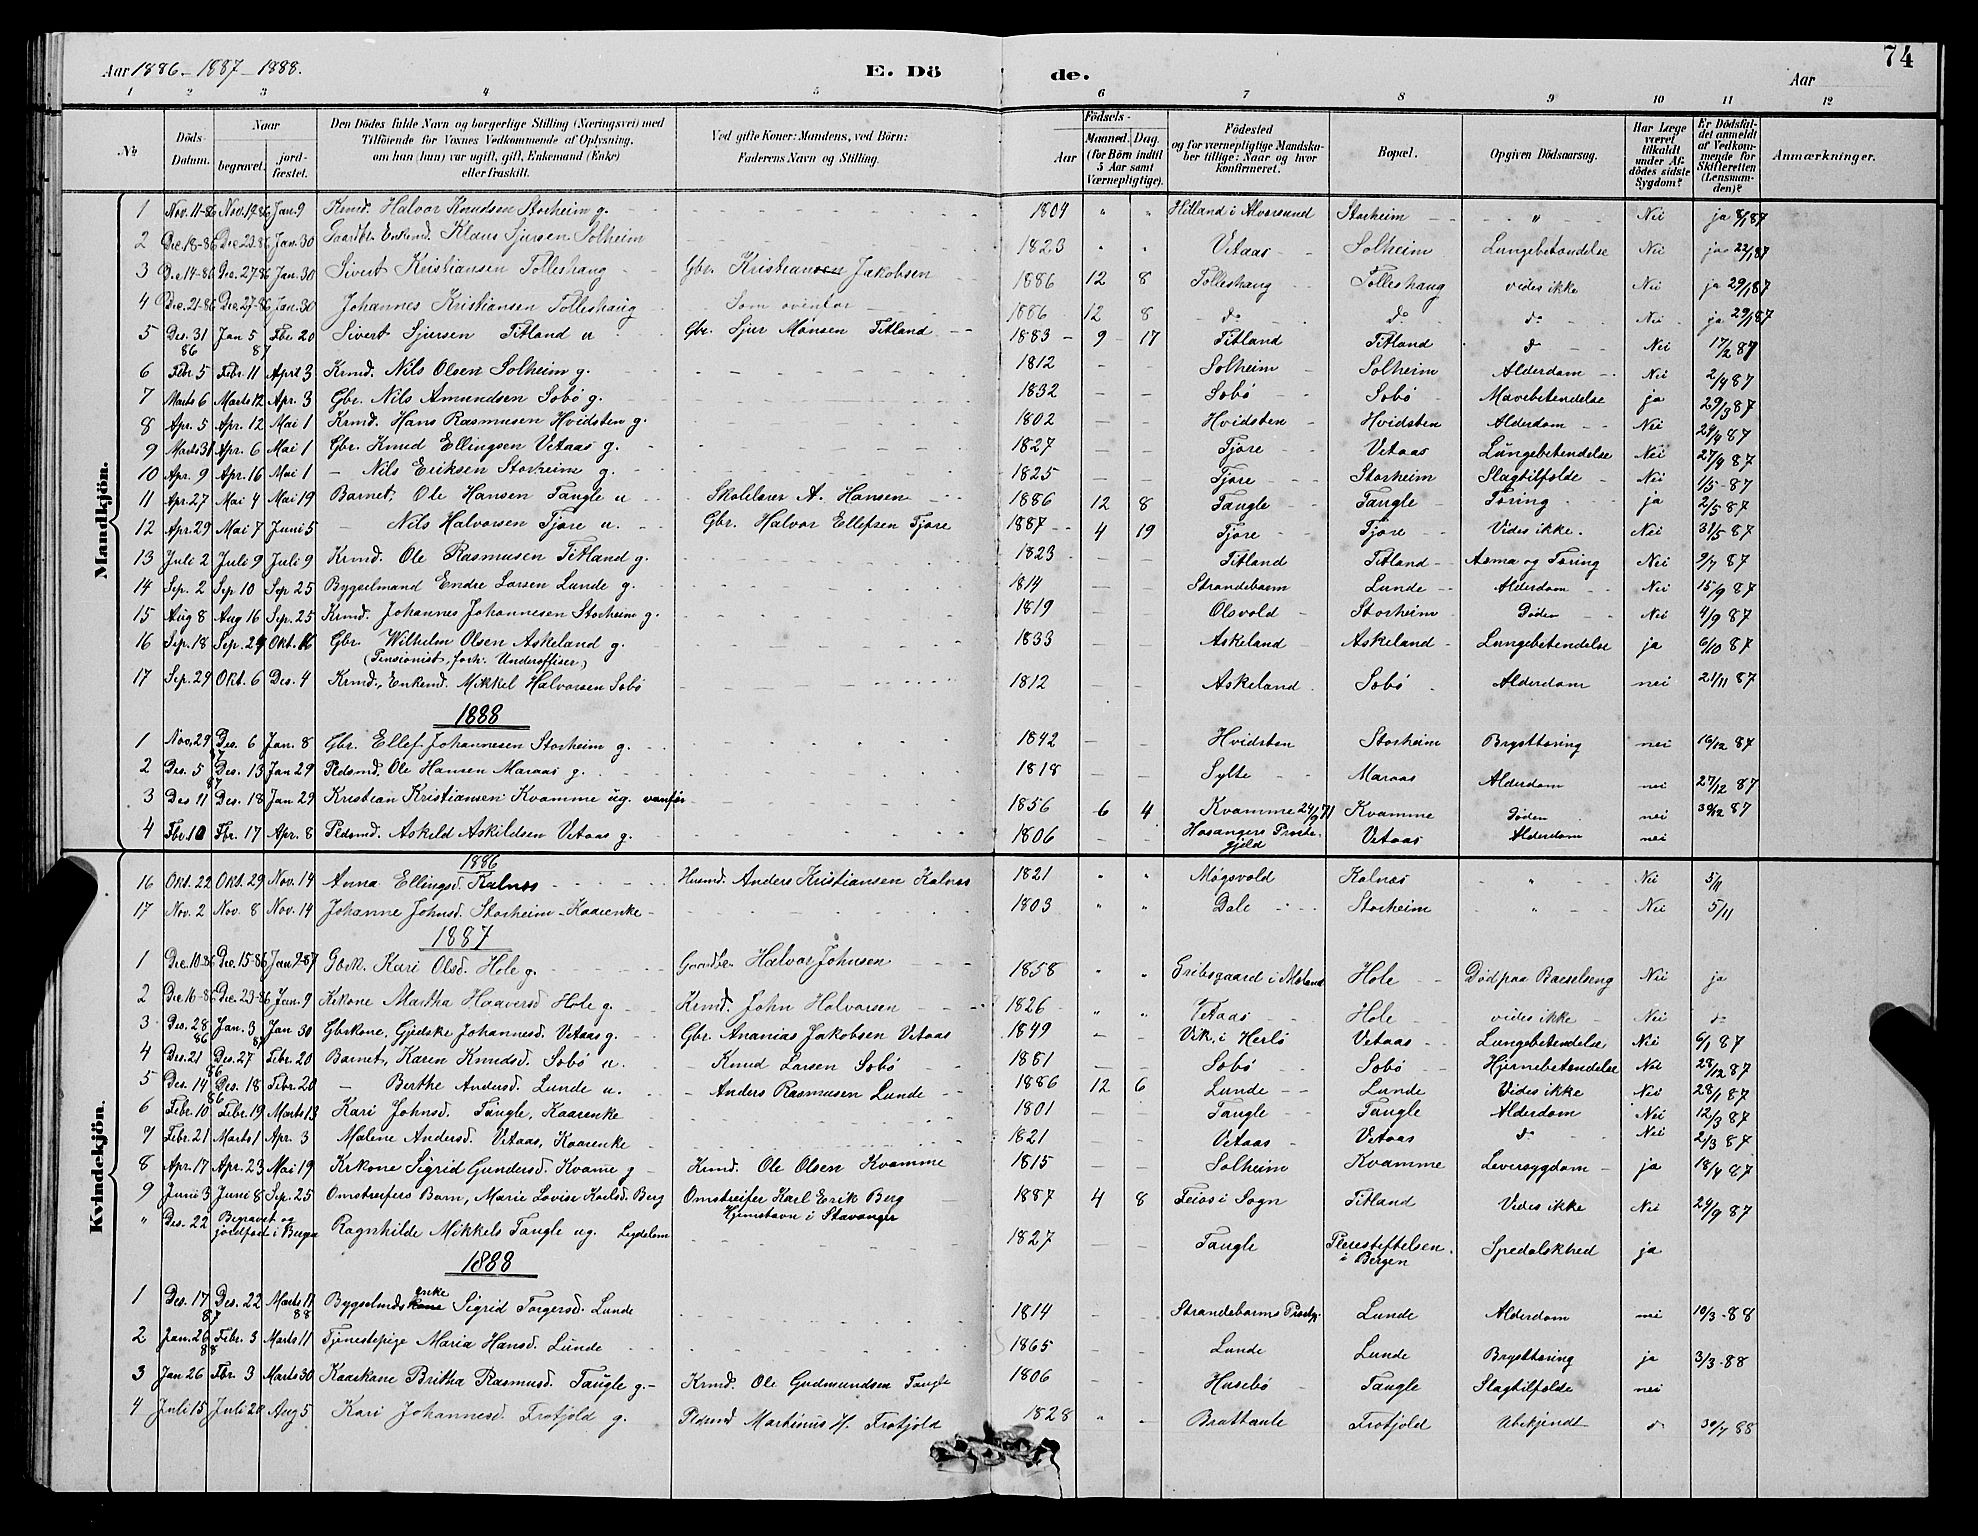 74
Aar 1886 - 1887 - 1888. E. Dö de. Aar
1 2 3 4 5 6 7 8 9 10 11 12
No Döds-Datum. Naar begravet. jordfæstet. Den Dödes fulde Navn og borgerlige Stilling (Næringsvei) med Tilföiende for Voxnes Vedkommende af Oplysning, om han (hun) var ugift, gift, Enkemand (Enke) eller fraskilt. Ved gifte Koner: Mandens, ved Börn: Faderens Navn og Stilling. Födsels- Aar Maaned. Dag. (for Børn indtil 5 Aar samt Værnepligtige). Födested og for værnepligtige Mandskaber tillige: Naar og hvor konfirmeret. Bopæl. Opgiven Dödsaarsag. Har Læge været tilkaldt under Afdödes sidste Sygdom? Er Dödsfaldet anmeldt af Vedkommende for Skifteretten (Lensmanden)? Anmærkninger.
Mandkjön.
1 Nov. 11-86 Nov. 19-86 Jan. 9 Krmd. Halvor Knudsen Storheim g. 1804 " " Hilland i Alversund Storheim " Nei ja 8/1 87
2 Dec. 18-86 Dec. 23-86 Jan. 30 Gaardbr. Enkemd. Klaus Sjursen Solheim 1823 " " Vetaas Solheim Lungebetændelse Nei ja 22/1 87
3 Dec. 14-86 Dec. 27-86 Jan. 30 Sivert Kristiansen Tolleshaug Gbr. Kristian Jakobsen 1886 12 8 Tolleshaug Tolleshaug vides ikke Nei ja 29/1 87
4 Dec. 21-86 Dec. 27-86 Jan. 30 Johannes Kristiansen Tolleshaug Som ovenfor 1886 12 8 do do do Nei ja 29/1 87
5 Des. 31 86 Jan 5 87 Fbr. 20 Sivert Sjursen Titland u Gbr. Sjur Monsen Titland 1883 9 17 Titland Titland do Nei 17/2 87
6 Febr. 5 Febr. 11 April 3 Krmd. Nils Olsen Solheim g. 1812 Solheim Solheim Alderdom Nei 2/4 87
7 Marts 6 Marts 12 Apr. 3 Gbr. Nils Amundsen Sobö g. 1832 Sobö Sobö Mavebetendelse ja 29/3 87
8 Apr. 5 Apr. 12 Mai 1 Krmd. Hans Rasmusen Hvidsten g. 1802 Hvidsten Hvidsten Alderdom Nei 24/4 87
9 Marts 31 Apr. 6 Mai 1 Gbr. Knud Ellingsen Vetaas g. 1827 Tjore Vetaas Lungebetendelse Nei 27/4 87
10 Apr. 9 Apr. 16 Mai 1 — Nils Eriksen Storheim g. 1825 Tjore Storheim Slagtilfælde Nei 1/5-87
11 Apr. 27 Mai 4 Mai 19 Barnet, Ole Hansen Tangle u Skolelærer A. Hansen 1886 12 8 Tangle Tangle Tæring ja 2/5 87
12 Apr. 29 Mai 7 Juni 5 — Nils Halvorsen Tjore u. Gbr. Halvor Ellefsen Tjore 1887 4 19 Tjore Tjore Vides ikke. Nei 31/5 87
13 Juli 2 Juli 9 Juli 9 Krmd. Ole Rasmusen Titland g. 1823 Titland Titland Asma og Tæring Nei 9/7 87
14 Sep. 2 Sep 10 Sep 25 Bygselmand Endre Larsen Lunde g. 1814 Strandebarm Lunde Alderdom Nei 15/9 87
15 Aug 8 Aug 16 Sep. 25 Krmd. Johannes Johannesen Storheim g. 1819 Olsvold Storheim Döden Nei 4/9 87
16 Sep. 18 Sep. 24 Okt. 16 Gbr. Wilhelm Olsen Askeland g. (Pensionist, forh. Underoffiser) 1833 Askeland Askeland Lungebetendelse ja 6/10 87
17 Sep. 29 Okt. 6 Des. 4 Krmd., Enkemd. Mikkel Halvorsen Sobö 1812 Askeland Sobö Alderdom nei 21/11 87
1888
1 Nov. 29 Des. 6 Jan. 8 Gbr. Ellef Johannesen Storheim g. 1842 Hvidsten Storheim Brysttæring nei 10/12 87
2 Des. 5 87 Des. 13 Jan 29 Pldsmd. Ole Hansen Maraas g. 1818 Sylte Maraas Alderdom nei 27/12 87
3 Des 11 Des. 18 Jan 29 Kristian Kristiansen Kvamme ug. vanför 1856 6 4 Kvamme 24/9 71 Kvamme Döden nei 30/12 87
4 Fbr. 10 Fbr. 17 Apr. 8 Pldsmd. Askild Askildsen Vetaas g. 1806 Hosangers Præstegjeld Vetaas Alderdom nei
Kvindekjön.
1886
16 Okt. 22 Okt. 29 Nov. 14 Anna Ellingsd. Kalnæs Husmd. Anders Kristiansen Kalnæs 1821 " " Mögsvold Kalnæs " Nei 5/11
17 Nov. 2 Nov. 8 Nov. 14 Johanne Johnsd. Storheim - Kaarenke 1803 " " Dale Storheim " Nei 5/11
1887
1 Dec. 10-86 Dec. 15-86 Jan 9-87 Gbrk. Kari Olsd. Hole g. Gaardbr. Halvor Johnsen 1858 " " Gribsgaard i Moland Hole Död paa Barselseng Nei ja
2 Dec 16-86 Dec. 23-86 Jan. 9 Krkone Martha Haaversd Hole g. Krmd. John Halvorsen 1826 " " Vetaas Hole vides ikke Nei do
3 Des. 28 86 Jan. 3 87 Jan 30 Gbrkone, Gjertske Johannesd. Vetaas g. Gbr. Ananias Jakobsen Vetaas 1849 Vik i Herlö Vetaas Lungebetendelse Nei 6/1 87
4 Des. 21 86 Des. 27 Febr. 20 Barnet, Karen Knudsd. Sobö u. — Knud Larsen Sobö 1881 Sobö Sobö Hjernebetendelse Nei 28/12 87
5 Des. 14 86 Des. 18 Febr. 20 — Berthe Andersd. Lunde u. — Anders Rasmusen Lunde 1886 12 6 Lunde Lunde Vides ikke Nei 28/1 87
6 Febr. 10 Febr. 19 Marts 13 Kari Johnsd. Tangle, Kaarenke 1801 Tangle Tangle Alderdom Nei 12/3 87
7 Febr. 21 Marts 1 Apr. 3 Malene Andersd. Vetaas, Kaarenke 1821 Vetaas Vetaas do Nei 2/3 87
8 Apr. 17 Apr. 23 Mai 19 Krkone Sigrid Gundersd. Kvame g Krmd. Ole Olsen Kvamme 1815 Solheim Kvamme Leversygdom ja 18/4 87
9 Juni 3 Juni 8 Sep. 25 Omstreifers Barn, Marie Lovise Karlsd. Berg Omstreifer Karl Eerik Berg Hjemstavn i Stavanger 1887 4 8 Feios i Sogn Titland Vides ikke Nei 24/9 87
" Des. 22 Begravet og jordfæst i Bergen Ragnhilde Mikkels Tangle ug. Legdelem 1827 Tangle Pleiestiftelsen i Bergen Spedalskhed ja
1888
1 Des. 17 87 Des. 22 Marts 11 88 Bygselmdsenke Sigrid Torgersd. Lunde 1814 Strandebarms Præstgj. Lunde Alderdom nei 10/3-88
2 Jan. 26 88 Febr. 3 Marts 11 Tjenestepige Maria Hansd. Lunde 1865 Lunde Lunde Brysttæring ja 3/3-88
3 Jan 26 Fbr. 3 Marts 30 Kaarkone Britha Rasmusd. Tangle g. Krmd. Ole Gudmundsen Tangle 1806 Husebö Tangle Slagtilfælde nei
4 Juli 15 Juli 20 Aug 5 Kari Johannesd. Frotjold g. Pldsmd Martinus H. Frotjold 1828 " " Brattaule Frotjold Ubekjendt do 30/7 88